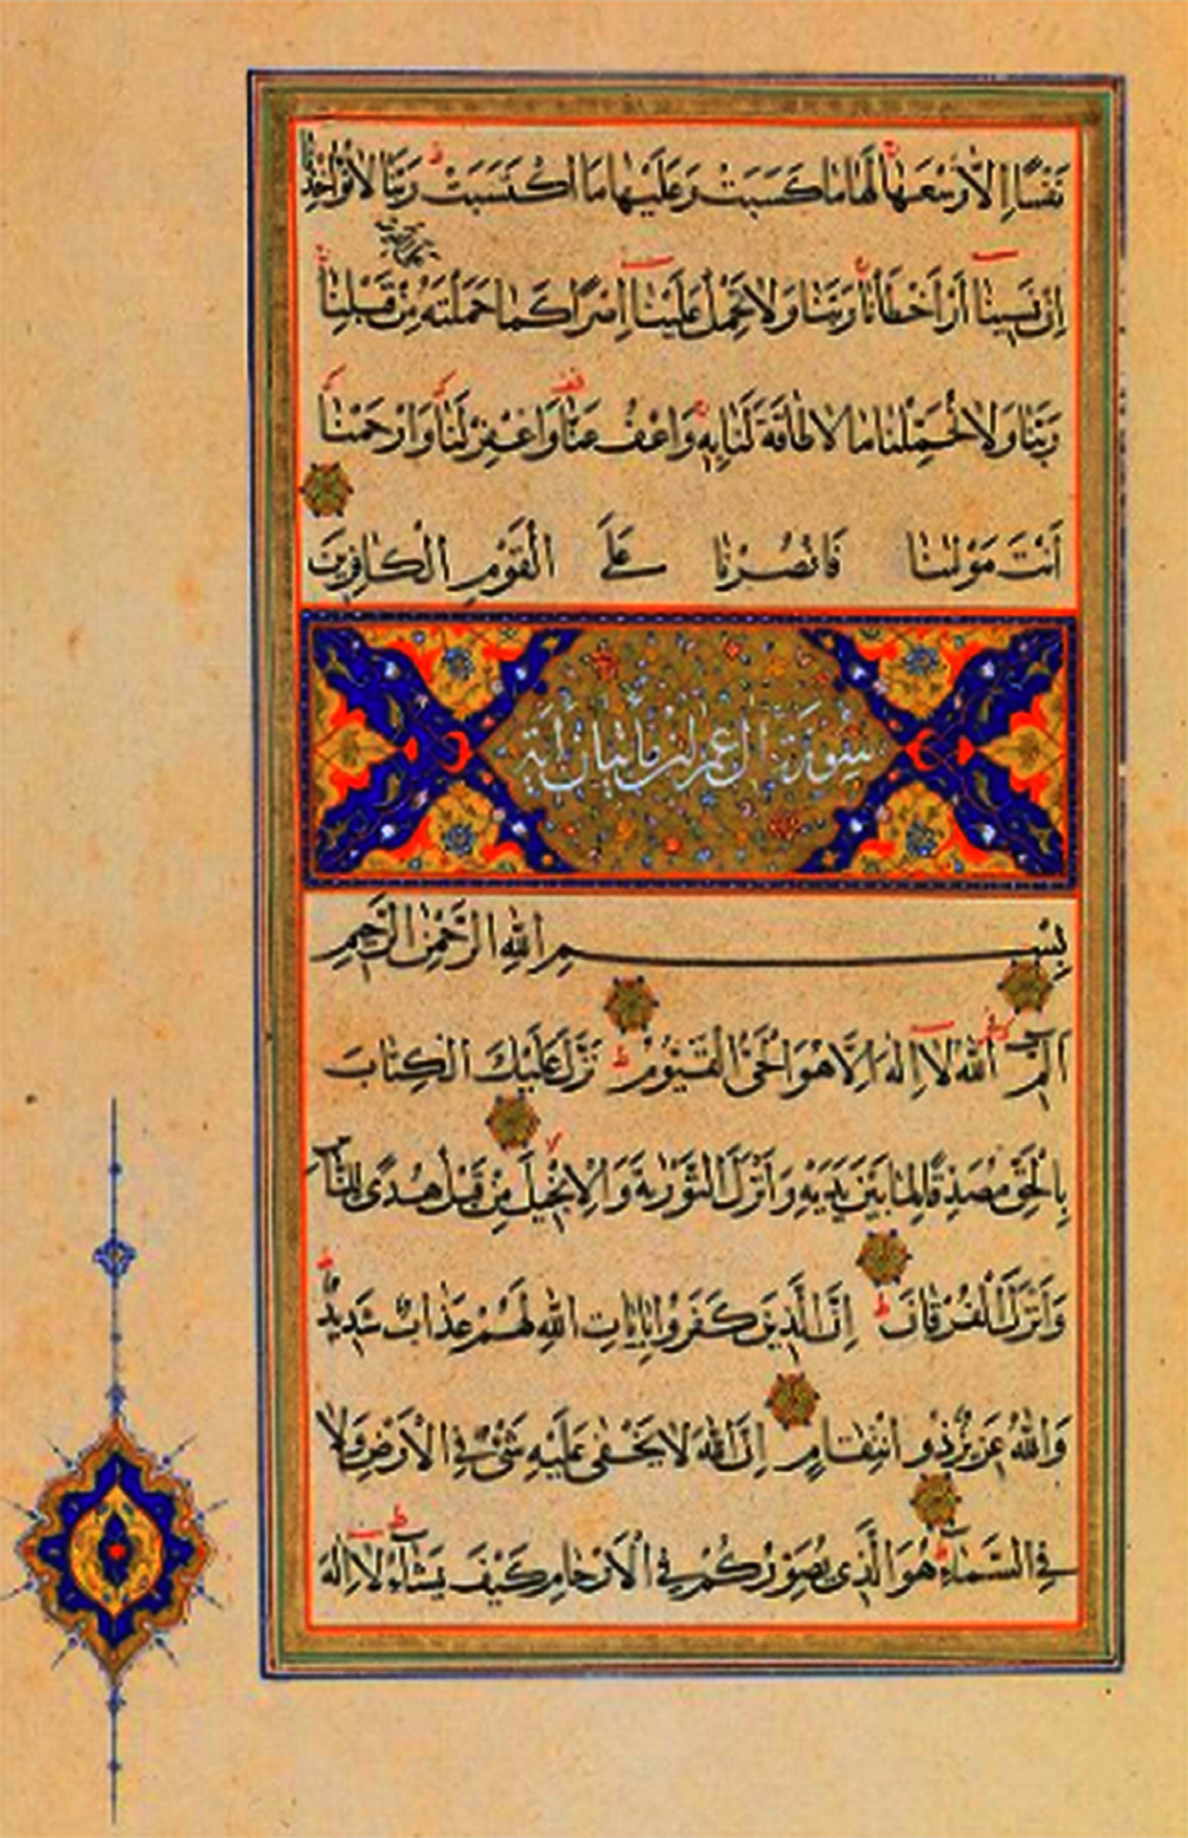 نَفْسًا إِلَّا وُسْعَهَا لَهَا مَا كَسَبَتْ وَعَلَيْهَا مَا اكْتَسَبَتْ رَبَّنَا لَا تُؤَاخِذْنَا
إِنْ نَسِينَا أَوْ أَخْطَأْنَا رَبَّنَا وَلَا تَحْمِلْ عَلَيْنَا إِصْرًا كَمَا حَمَلْتَهُ مِنْ قَبْلِنَا
رَبَّنَا وَلَا تُحَمِّلْنَا مَا لَا طَاقَةَ لَنَا بِهِ وَاعْفُ عَنَّا وَاغْفِرْ لَنَا وَارْحَمْنَا
أَنْتَ مَوْلٰنَا فَانْصُرْنَا عَلَى الْقَوْمِ الْكَافِرِينَ
سُورَة آل عمرٰن مائتان آية
بِسْمِ اللّٰهِ الرَّحْمٰنِ الرَّحِيمِ
الٓمٓ اَللّٰهُ لَا إِلٰهَ إِلَّا هُوَ الْحَيُّ الْقَيُّومُ نَزَّلَ عَلَيْكَ الْكِتَابَ
بِالْحَقِّ مُصَدِّقًا لِمَا بَيْنَ يَدَيْهِ وَأَنْزَلَ التَّوْرٰيةَ وَالْإِنْجِيلَ مِنْ قَبْلُ هُدًى لِلنَّاسِ
وَأَنْزَلَ الْفُرْقَانَ إِنَّ الَّذِينَ كَفَرُوا بِآيَاتِ اللّٰهِ لَهُمْ عَذَابٌ شَدِيدٌ
وَاللّٰهُ عَزِيزٌ ذُو انْتِقَامٍ إِنَّ اللّٰهَ لَا يَخْفٰى عَلَيْهِ شَيْءٌ فِي الْأَرْضِ وَلَا
فِي السَّمَاءِ هُوَ الَّذِي يُصَوِّرُكُمْ فِي الْأَرْحَامِ كَيْفَ يَشَاءُ لَا إِلٰهَ